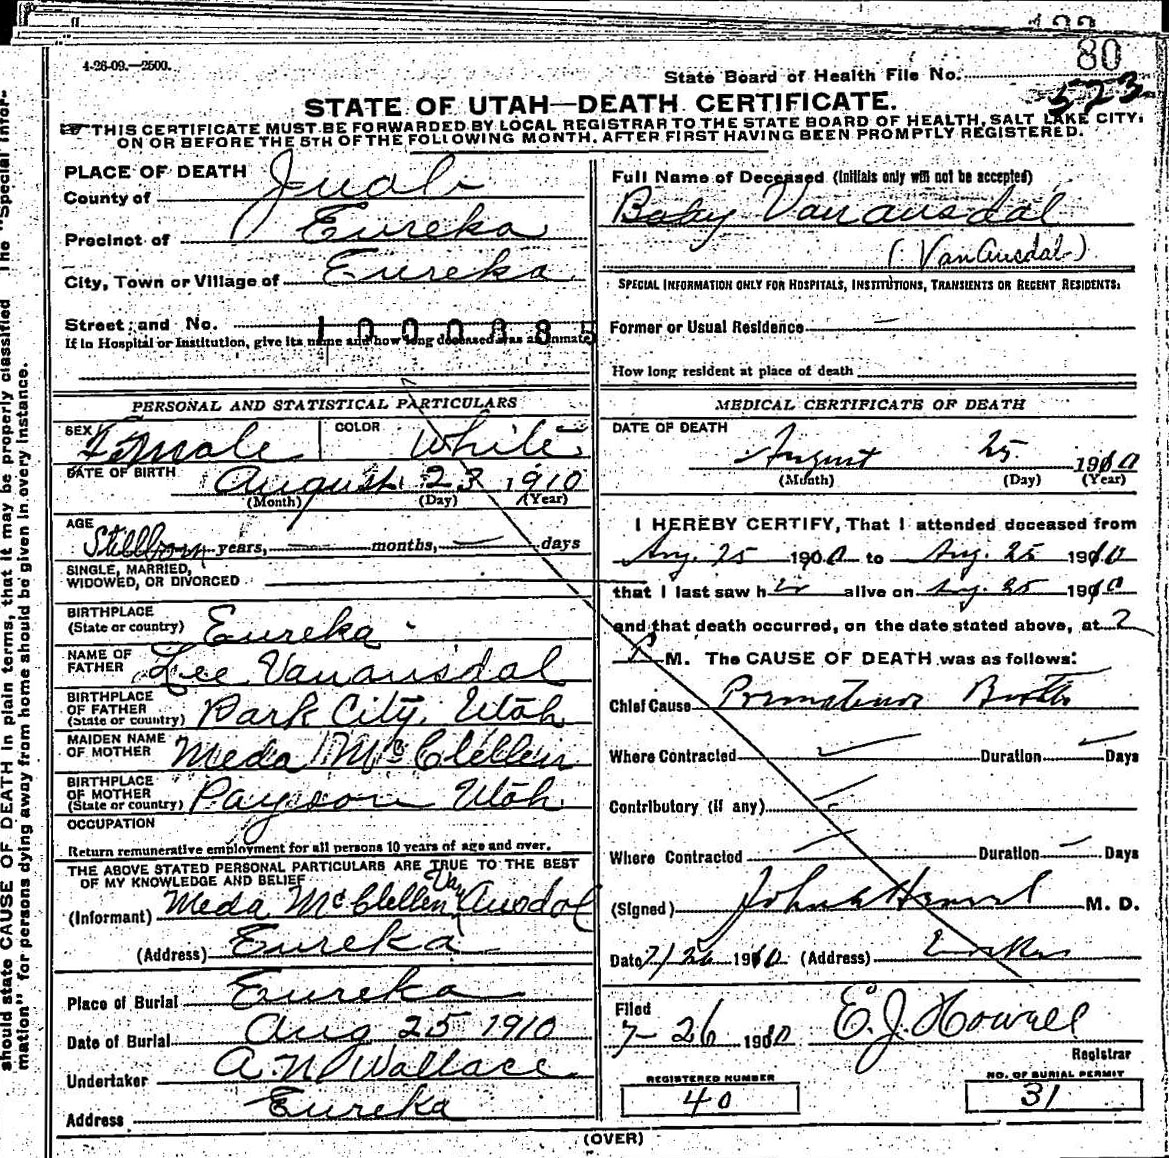 4-26-09.—2500.
80
State Board of Health File No.
523
STATE OF UTAH—DEATH CERTIFICATE.
THIS CERTIFICATE MUST BE FORWARDED BY LOCAL REGISTRAR TO THE STATE BOARD OF HEALTH, SALT LAKE CITY,
ON OR BEFORE THE 5TH OF THE FOLLOWING MONTH, AFTER FIRST HAVING BEEN PROMPTLY REGISTERED.
should state CAUSE OF DEATH in plain terms, that it may be properly classified The "Special Infor-
mation" for persons dying away from home should be given in every instance.
PLACE OF DEATH
County of Juab
Precinct of Eureka
City, Town or Village of Eureka
Street and No.
1000385
If in Hospital or Institution, give its name and how long deceased was an inmate
PERSONAL AND STATISTICAL PARTICULARS
SEX Female COLOR White
DATE OF BIRTH August 23 1910
(Month) (Day) (Year)
AGE Stillborn years, — months, — days
SINGLE, MARRIED,
WIDOWED, OR DIVORCED
BIRTHPLACE
(State or country) Eureka
NAME OF
FATHER Lee Vanausdal
BIRTHPLACE
OF FATHER
(State or country) Park City, Utah
MAIDEN NAME
OF MOTHER Meda McClellen
BIRTHPLACE
OF MOTHER
(State or country) Payson Utah
OCCUPATION
Return remunerative employment for all persons 10 years of age and over.
THE ABOVE STATED PERSONAL PARTICULARS ARE TRUE TO THE BEST
OF MY KNOWLEDGE AND BELIEF
(Informant) Meda McClellen Van Ausdal
(Address) Eureka
Place of Burial Eureka
Date of Burial Aug 25 1910
Undertaker A. N. Wallace
Address Eureka
Full Name of Deceased (Initials only will not be accepted)
Baby Vanausdal
(VanAusdal)
SPECIAL INFORMATION ONLY FOR HOSPITALS, INSTITUTIONS, TRANSIENTS OR RECENT RESIDENTS:
Former or Usual Residence —
How long resident at place of death
MEDICAL CERTIFICATE OF DEATH
DATE OF DEATH
August 25 1910
(Month) (Day) (Year)
I HEREBY CERTIFY, That I attended deceased from
Aug. 25 1910 to Aug. 25 1910
that I last saw her alive on Aug. 25 1910
and that death occurred, on the date stated above, at 2
P M. The CAUSE OF DEATH was as follows:
Chief Cause Premature Birth
Where Contracted Duration Days
Contributory (if any)
Where Contracted Duration Days
(Signed) M. D.
Date 7/26 1910 (Address) Eureka
Filed
7-26 1910 E. J. Howell
Registrar
REGISTERED NUMBER
40
NO. OF BURIAL PERMIT
31
(OVER)